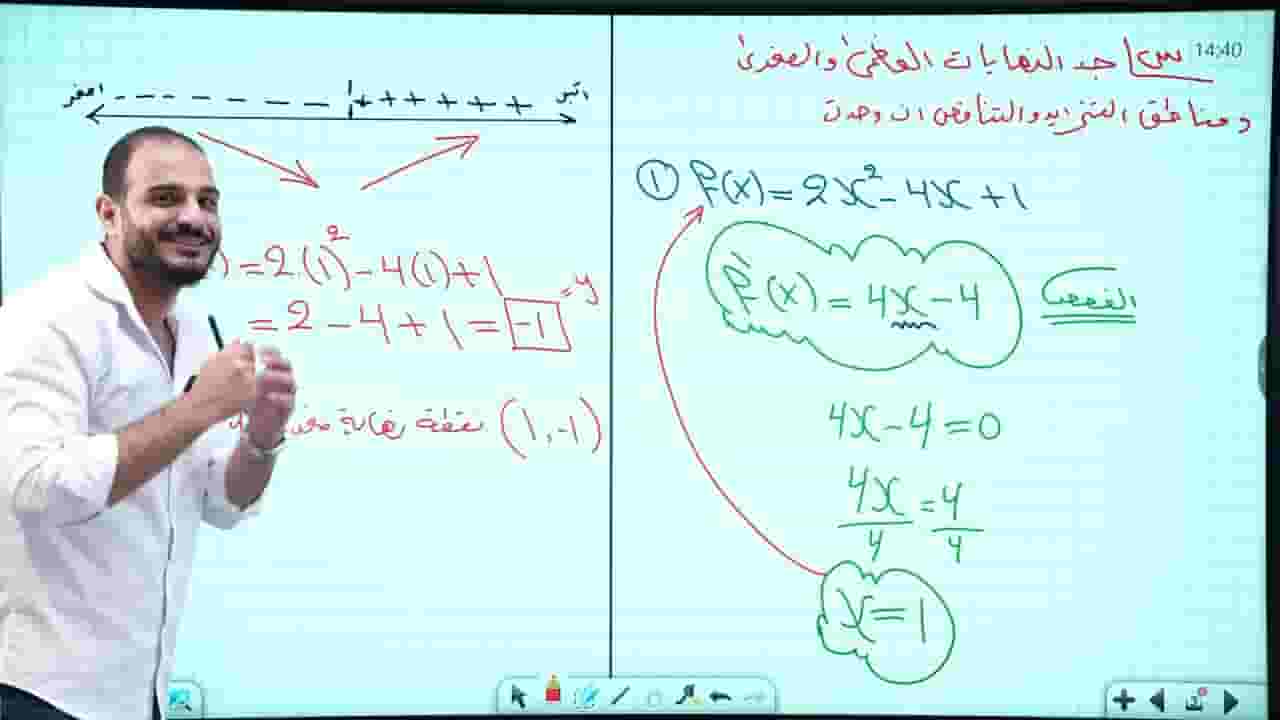 14:40
س/ جد النهايات العظمى والصغرى
ومناطق التزايد والتناقص ان وجدت
① f(x) = 2x² - 4x + 1
f'(x) = 4x - 4
4x - 4 = 0
4x/4 = 4/4
x = 1
اصغر - - - - - - - - + + + + + + اكبر
) = 2(1)² - 4(1) + 1
= 2 - 4 + 1 = -1 = y
(1, -1) نقطة نهاية